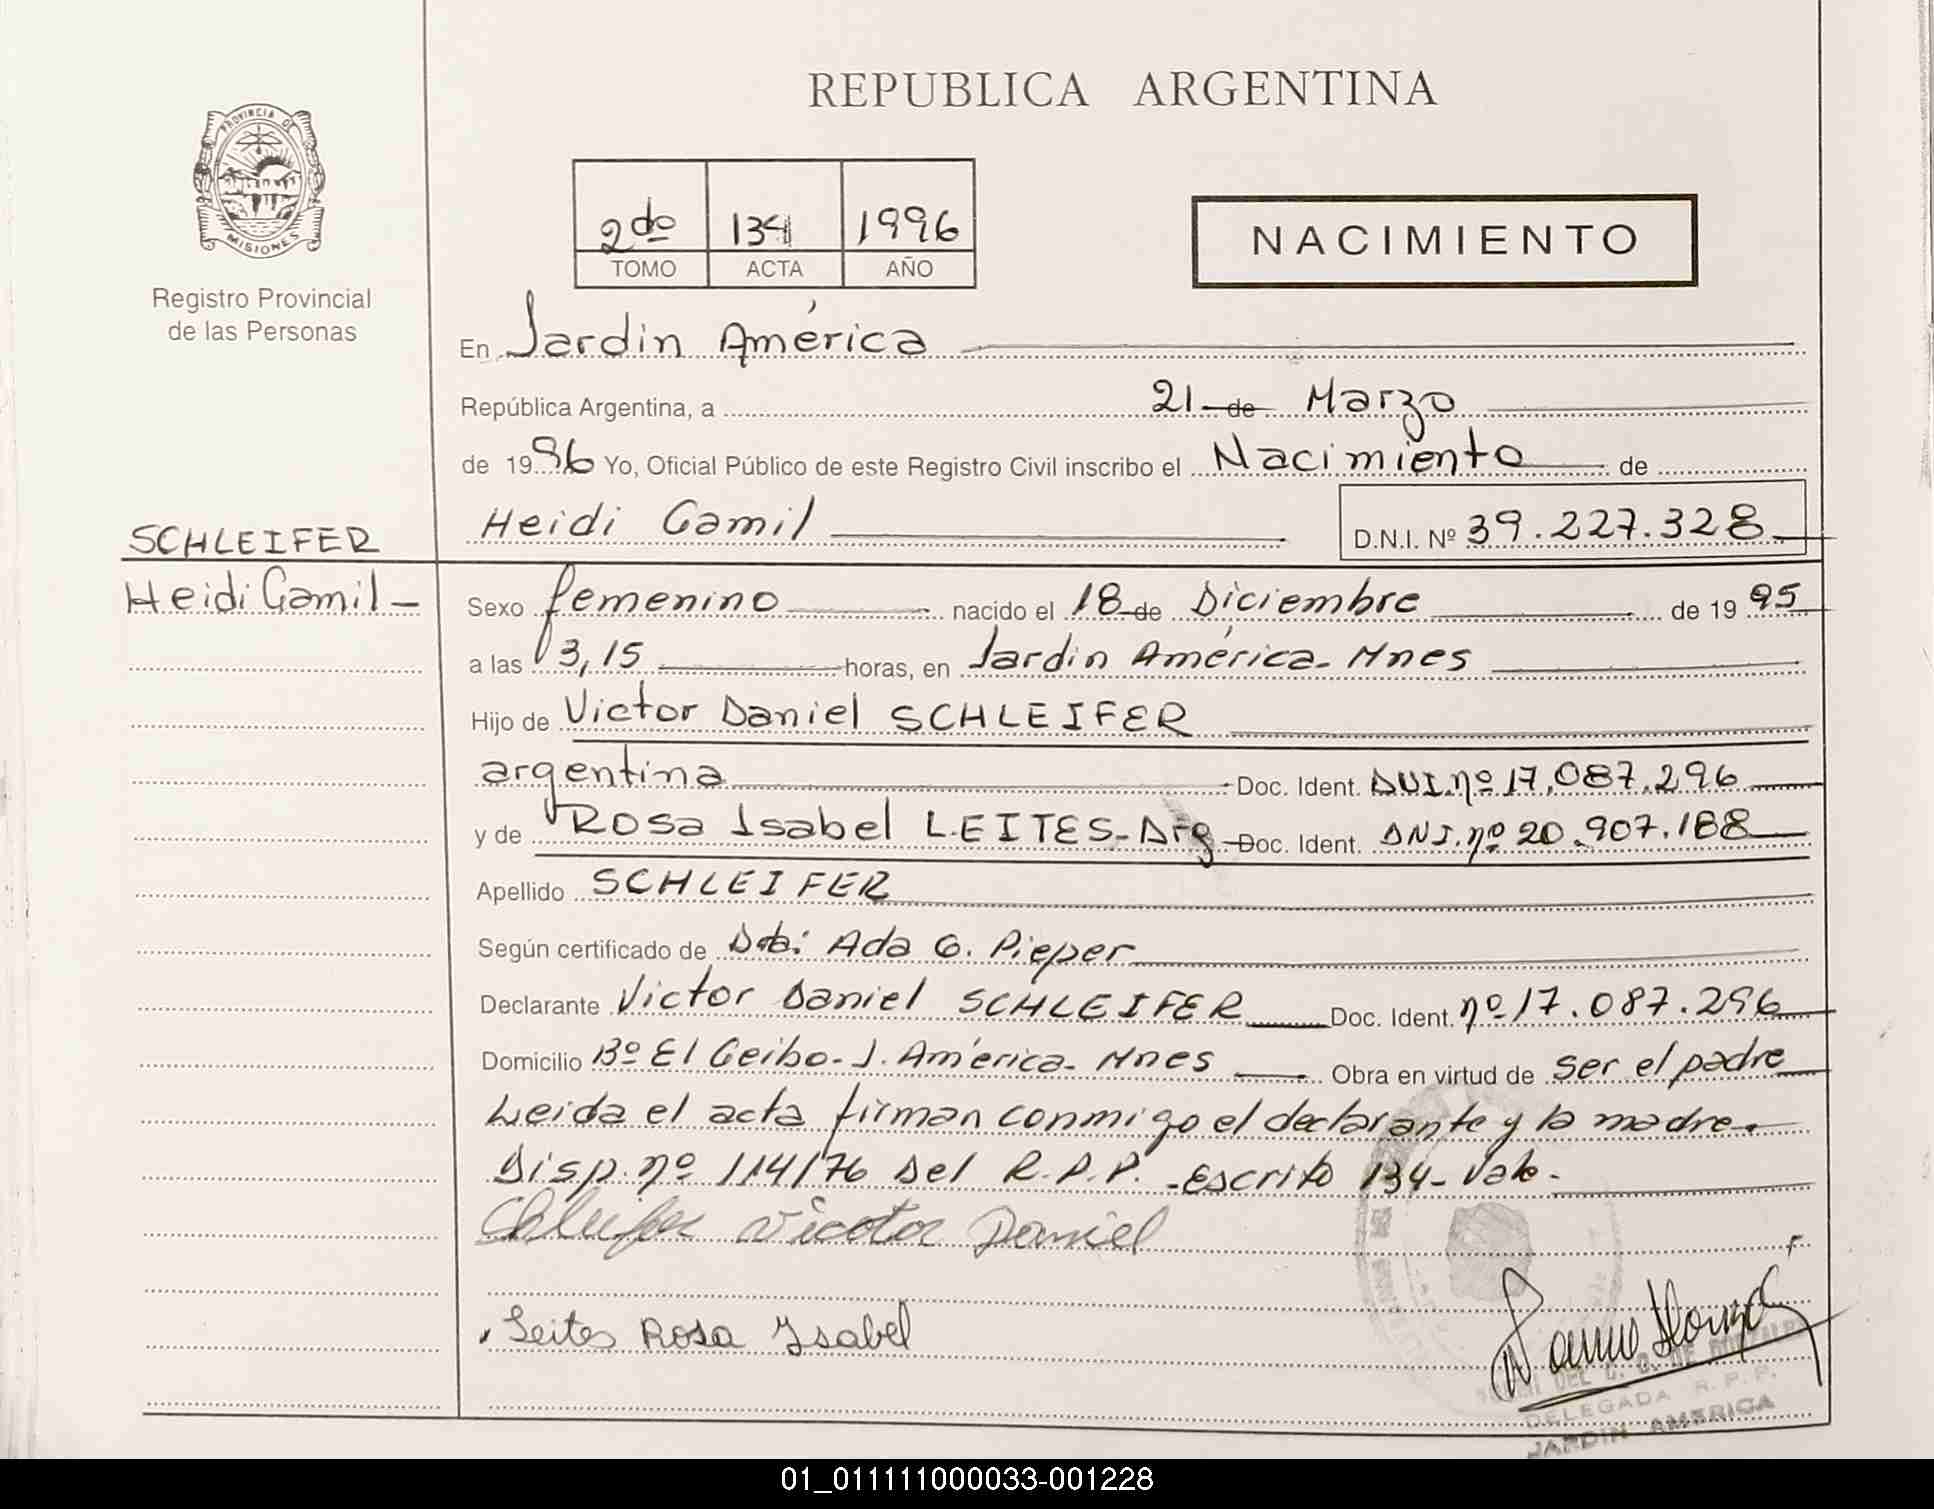 REPUBLICA ARGENTINA
PROVINCIA DE
MISIONES
Registro Provincial
de las Personas
2do 134 1996
TOMO ACTA AÑO
NACIMIENTO
En Jardin América
República Argentina, a 21 de Marzo
de 1996 Yo, Oficial Público de este Registro Civil inscribo el Nacimiento de
Heidi Camil D.N.I. Nº 39.227.328
SCHLEIFER
Heidi Camil
Sexo femenino nacido el 18 de Diciembre de 1995
a las 3,15 horas, en Jardin América - Mnes
Hijo de Victor Daniel SCHLEIFER
argentina Doc. Ident. DNI. nº 17.087.296
y de Rosa Isabel LEITES - Arg Doc. Ident. DNI. nº 20.907.188
Apellido SCHLEIFER
Según certificado de Dra: Ada G. Pieper
Declarante Victor Daniel SCHLEIFER Doc. Ident. nº 17.087.296
Domicilio Bº El Ceibo - J. América - Mnes Obra en virtud de ser el padre
Leida el acta firman conmigo el declarante y la madre.
Disp. nº 114/76 Del R.P.P. - Escrito 134 - Vale.
Victor Daniel
Leites Rosa Ysabel
DELEGADA R.P.P.
JARDIN AMERICA
01_011111000033-001228